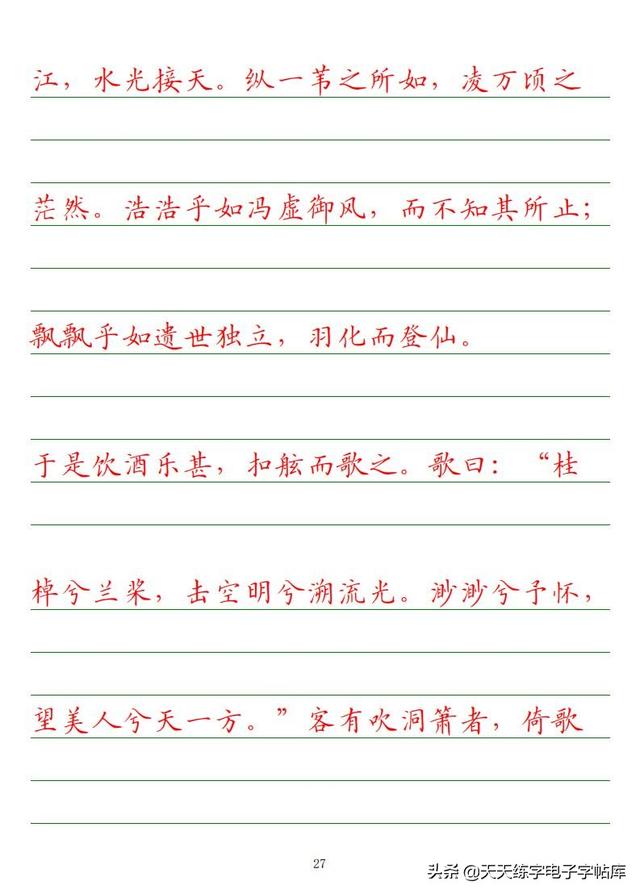 江，水光接天。纵一苇之所如，凌万顷之
茫然。浩浩乎如冯虚御风，而不知其所止；
飘飘乎如遗世独立，羽化而登仙。
于是饮酒乐甚，扣舷而歌之。歌曰：“桂
棹兮兰桨，击空明兮溯流光。渺渺兮予怀，
望美人兮天一方。”客有吹洞箫者，倚歌
27
头条 @天天练字电子字帖库